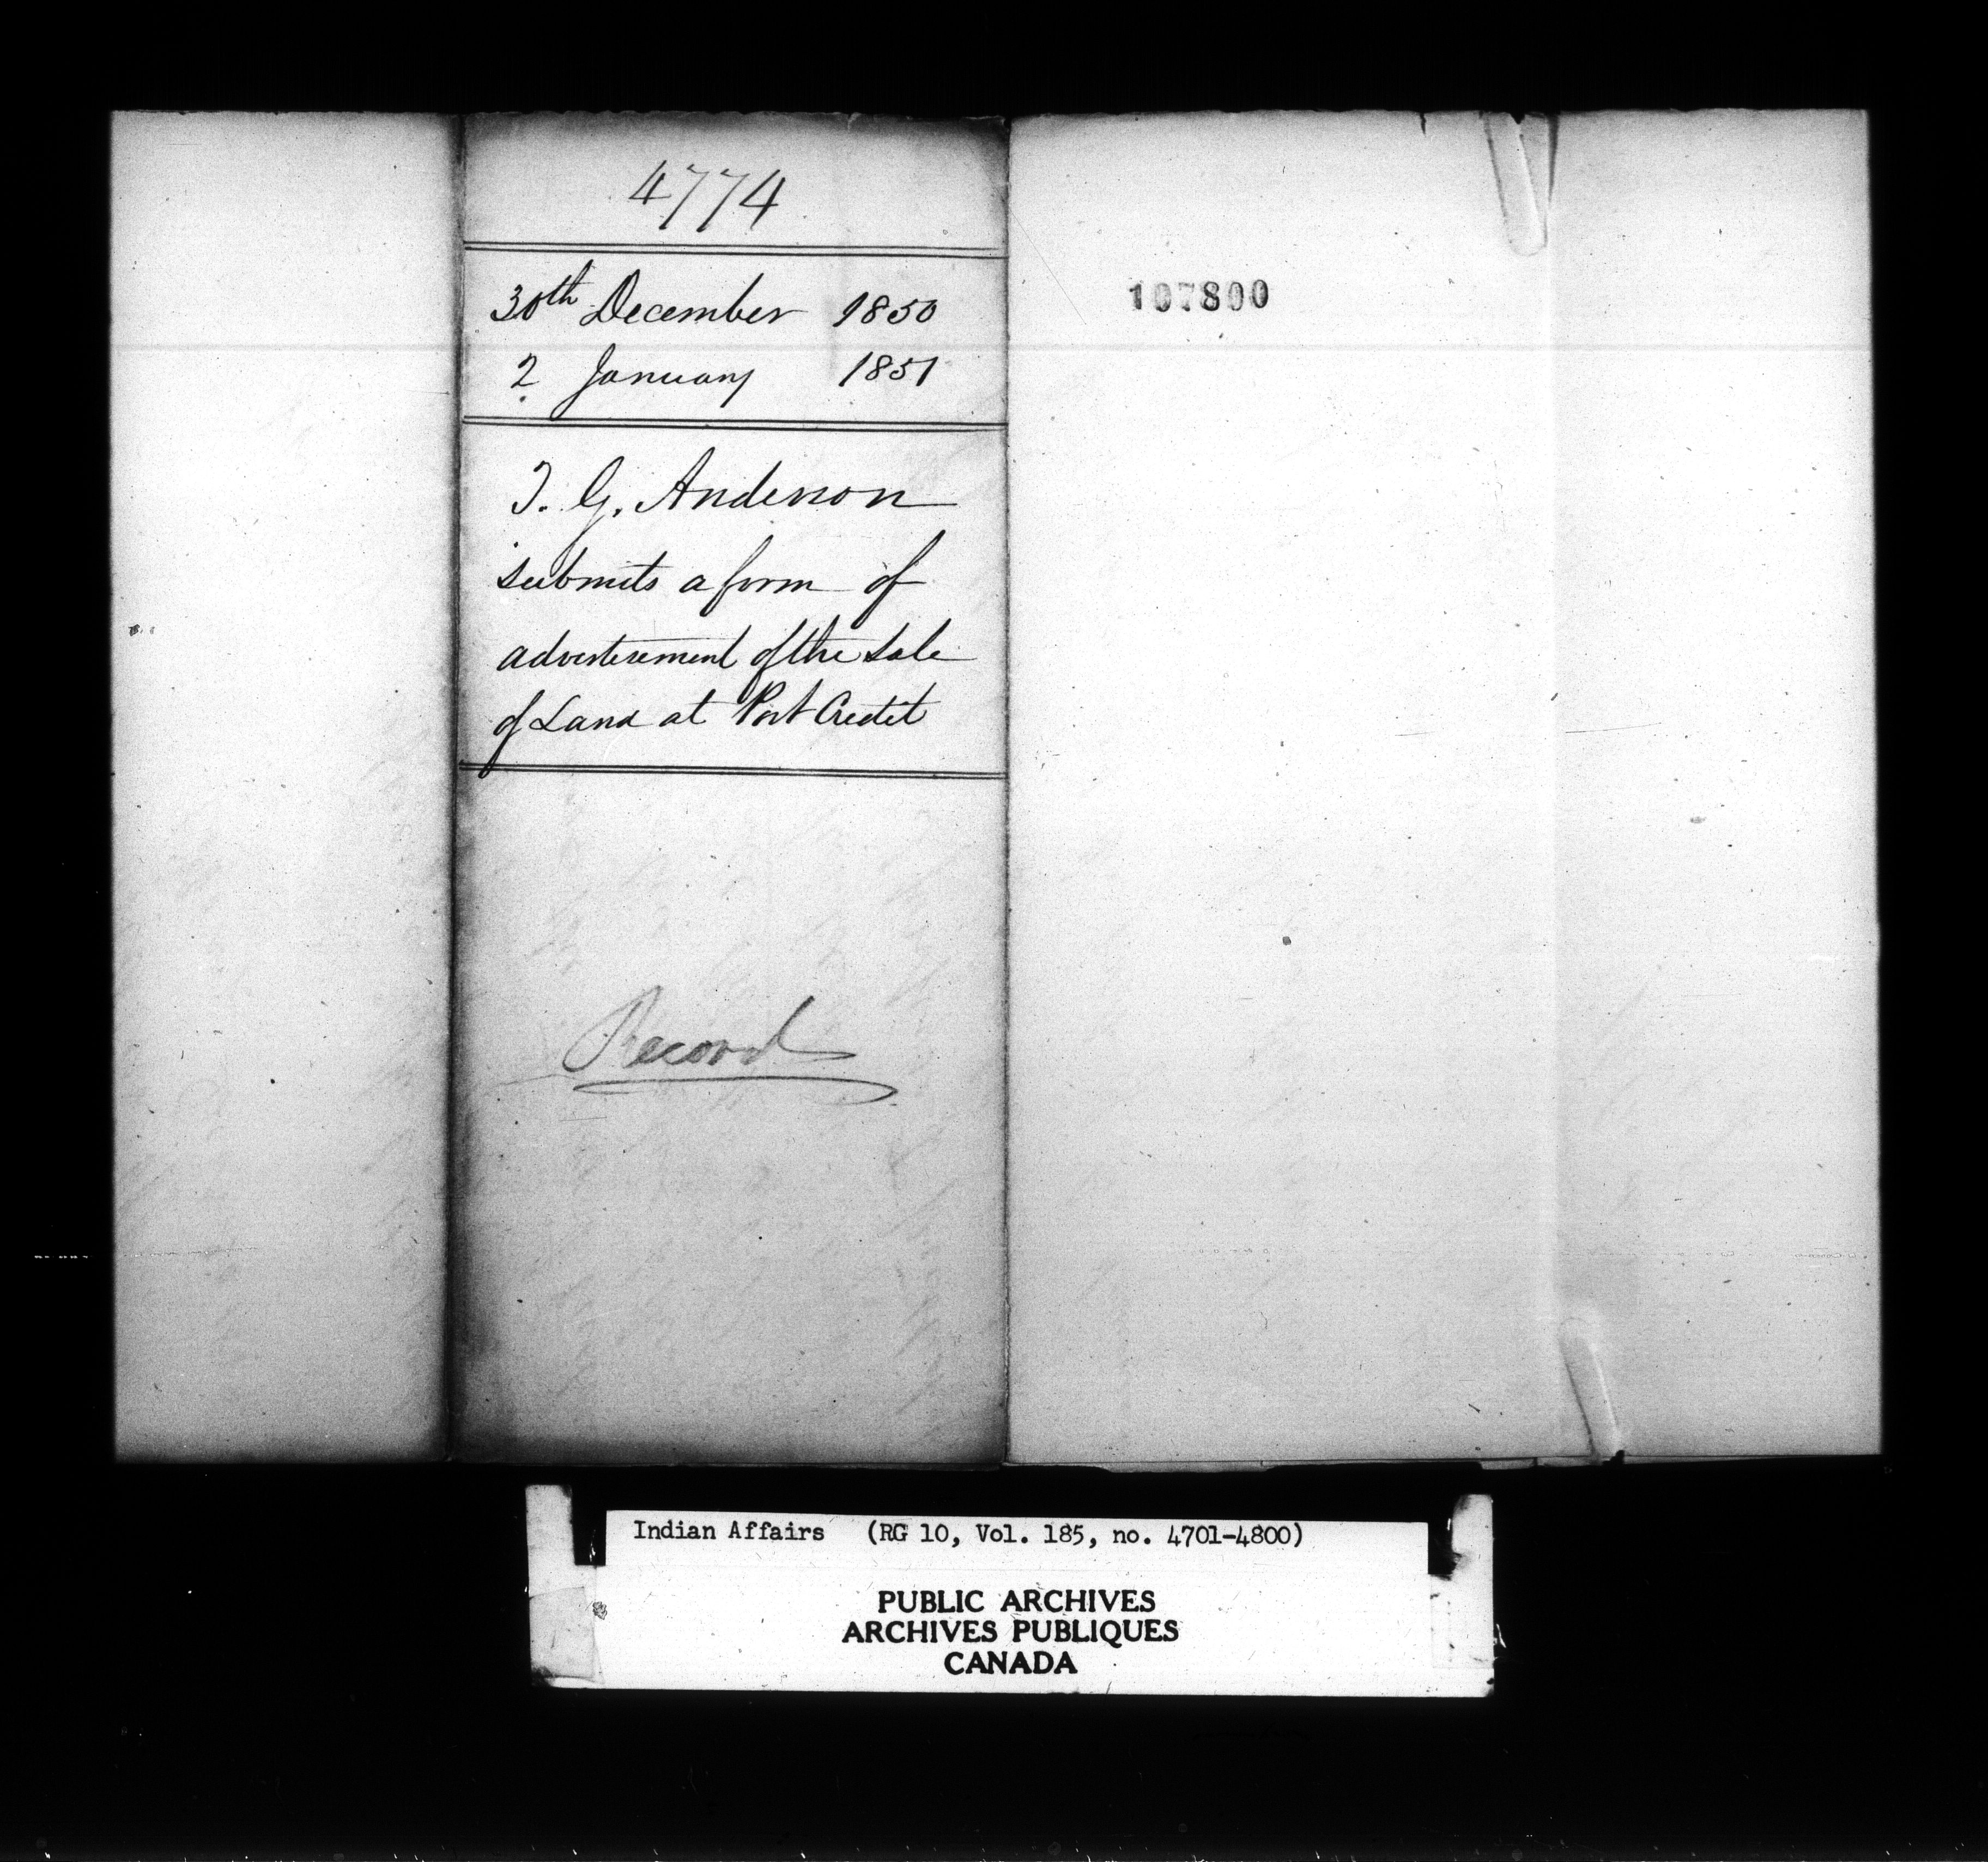 4774
30th December 1850
2 January 1851
T. G. Anderson
submits a form of
advertisement of the sale
of Land at Port Credit
Record
107800
Indian Affairs (RG 10, Vol. 185, no. 4701-4800)
PUBLIC ARCHIVES
ARCHIVES PUBLIQUES
CANADA